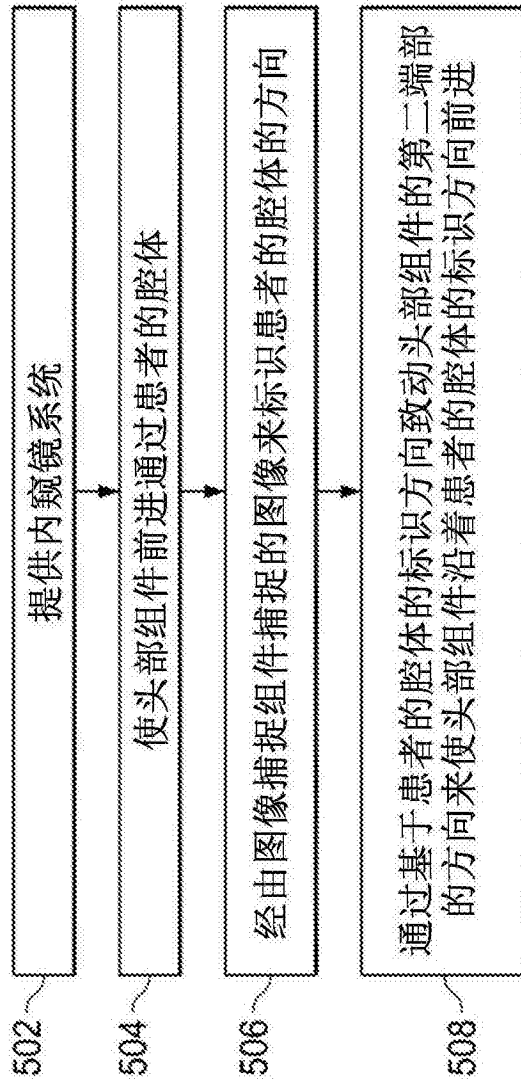 502
提供内窥镜系统
504
使头部组件前进通过患者的腔体
506
经由图像捕捉组件捕捉的图像来标识患者的腔体的方向
508
通过基于患者的腔体的标识方向致动头部组件的第二端部
的方向来使头部组件沿着患者的腔体的标识方向前进